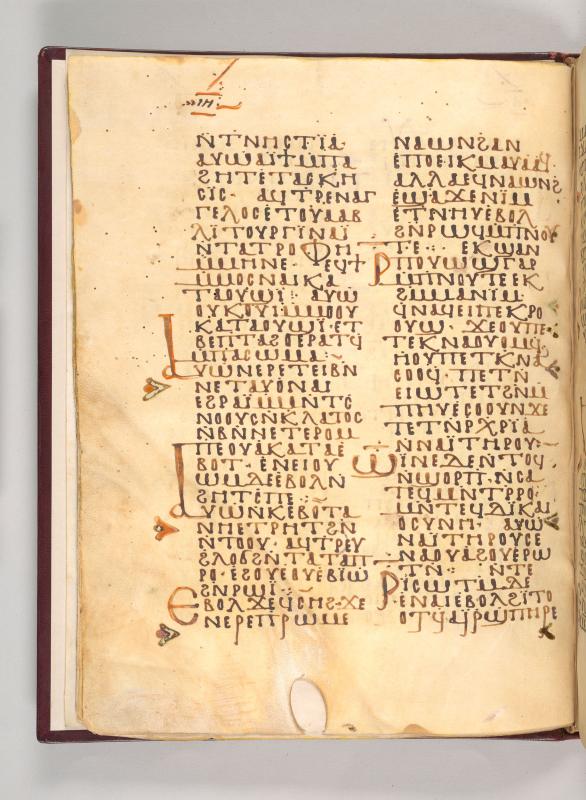 ⲓⲏ
ⲛ̄ⲧⲛⲏⲥⲧⲓ̈ⲁ·
ⲁⲩⲱⲁⲓ̈ϯⲙ̄ⲡⲁ
ϩⲏⲧⲉⲧⲁⲥⲕⲏ
ⲥⲓ̈ⲥ· ⲁϥⲧⲣⲉⲛⲁⲅ
ⲅⲉⲗⲟⲥⲉⲧⲟⲩⲁⲁⲃ
ⲗⲓ̈ⲧⲟⲩⲣⲅⲓ̈ⲛⲁⲓ̈
ⲛ̄ⲧⲁⲧⲣⲟⲫⲏ
ⲙ̄ⲙⲏⲛⲉ· ⲉϥϯ
ⲙ̄ⲙⲟⲥⲛⲁⲓ̈ⲕⲁ
ⲧⲁⲟⲩϣⲓ̈· ⲁⲩⲱ
ⲟⲩⲕⲟⲩⲓ̈ⲙ̄ⲙⲟⲟⲩ
ⲕⲁⲧⲁⲟⲩϣⲓ̈· ⲉⲧ
ⲃⲉⲡⲧⲁϩⲟⲉⲣⲁⲧϥ
ⲙ̄ⲡⲁⲥⲱⲙⲁ·
ⲁⲩⲱⲛⲉⲣⲉⲧⲉⲓⲃⲛ̄
ⲛⲉⲧⲁⲩⲟⲛⲁⲓ̈
ⲉϩⲣⲁⲓ̈ⲙ̄ⲛ̄ⲧⲥ
ⲛⲟⲟⲩⲥⲛ̄ⲕⲗⲁⲧⲟⲥ
ⲛ̄ⲃⲛ̄ⲛⲉⲧⲉⲣⲟⲙ
ⲡⲉⲟⲩⲁⲕⲁⲧⲁⲉ
ⲃⲟⲧ· ⲉⲛⲉⲓⲟⲩ
ⲱⲙⲇⲉⲉⲃⲟⲗⲛ̄
ϩⲏⲧⲉ̄ⲡⲉ·
ⲁⲩⲱⲛ̄ⲕⲉⲃⲟⲧⲁ
ⲛⲏⲉⲧⲣⲏⲧϩⲛ̄
ⲛ̄ⲧⲟⲟⲩ· ⲁϥⲧⲣⲉⲩ
ϩⲗⲟϭⲛ̄ⲧⲁⲧⲁⲡ
ⲣⲟ· ⲉϩⲟⲩⲉⲟⲩⲉⲃⲓⲱ̄
ϩⲛ̄ⲣⲱⲓ̈·
ⲉⲃⲟⲗϫⲉϥⲥⲏϩ·ϫⲉ
ⲛⲉⲣⲉⲡⲣⲱⲙⲉ
ⲛⲁⲱⲛϩⲁⲛ
ⲉⲡⲟⲉⲓⲕⲙⲁⲩⲁⲁϥ·
ⲁⲗⲗⲁⲉϥⲛⲁⲱⲛϩ
ⲉϣⲁϫⲉⲛⲓⲙ
ⲉⲧⲛⲏⲩⲉⲃⲟⲗ
ϩⲛ̄ⲣⲱϥⲙ̄ⲡⲛⲟⲩ
ⲧⲉ: ⲉⲕϣⲁⲛ
ⲣ̄ⲡⲟⲩⲱϣⲅⲁⲣ
ⲙ̄ⲡⲛⲟⲩⲧⲉⲉⲕ
ϩⲙⲙⲁⲛⲓⲙ·
ϥⲛⲁϥⲉⲓⲡⲉⲕⲣⲟ
ⲟⲩϣ· ϫⲉⲟⲩⲡⲉ
ⲧⲉⲕⲛⲁⲟⲩⲟⲙϥ
ⲏⲟⲩⲡⲉⲧⲕⲛⲁ
ⲥⲟⲟϥ· ⲡⲉⲧⲛ̄
ⲉⲓⲱⲧⲉⲧϩⲛ̄ⲙ
ⲡⲏⲩⲉⲥⲟⲟⲩⲛϫⲉ
ⲧⲉⲧⲛ̄ⲣⲭⲣⲓ̈ⲁ
ⲛ̄ⲛⲁⲓ̈ⲧⲏⲣⲟⲩ:
ϣⲓⲛⲉⲇⲉⲛ̄ⲧⲟϥ·
ⲛ̄ϣⲟⲣⲡ̄·ⲛ̄ⲥⲁ
ⲧⲉϥⲙⲛ̄ⲧⲣ̄ⲣⲟ·
ⲙⲛ̄ⲧⲉϥⲇⲓⲕⲁⲓ
ⲟⲥⲩⲛⲏ· ⲁⲩⲱ
ⲛⲁⲓ̈ⲧⲏⲣⲟⲩⲥⲉ
ⲛⲁⲟⲩⲁϩⲟⲩⲉⲣⲱ
ⲧⲛ̄: ⲛ̄ⲧⲉ
ⲣⲓⲥⲱⲧⲙ̄ⲇⲉ
ⲉⲛⲁⲓ̈ⲉⲃⲟⲗϩⲓ̈ⲧⲟ
ⲟⲧϥ ⲁⲓ̈ⲣ̄ϣⲡⲏⲣⲉ